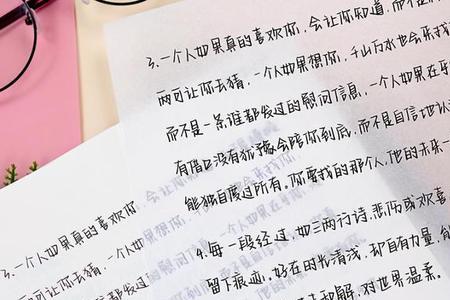 3.一个人如果真的喜欢你,会让你知道,而不是
两可让你去猜,一个人如果想你,千山万水也会来找
而不是一条谁都发过的慰问信息,一个人如果在乎
有借口没有犹豫会陪你到底,而不是自信地认
能独自度过所有。你要找的那个人,他的未来一
4.每一段经过,如三两行诗,悲伤或欢喜
留下痕迹,好在时光清浅,却自有力量,能
和解,对世界温柔。
3.一个人如果真的喜欢你
两可让你去猜,一个人如果想你,
而不是一条谁都发过